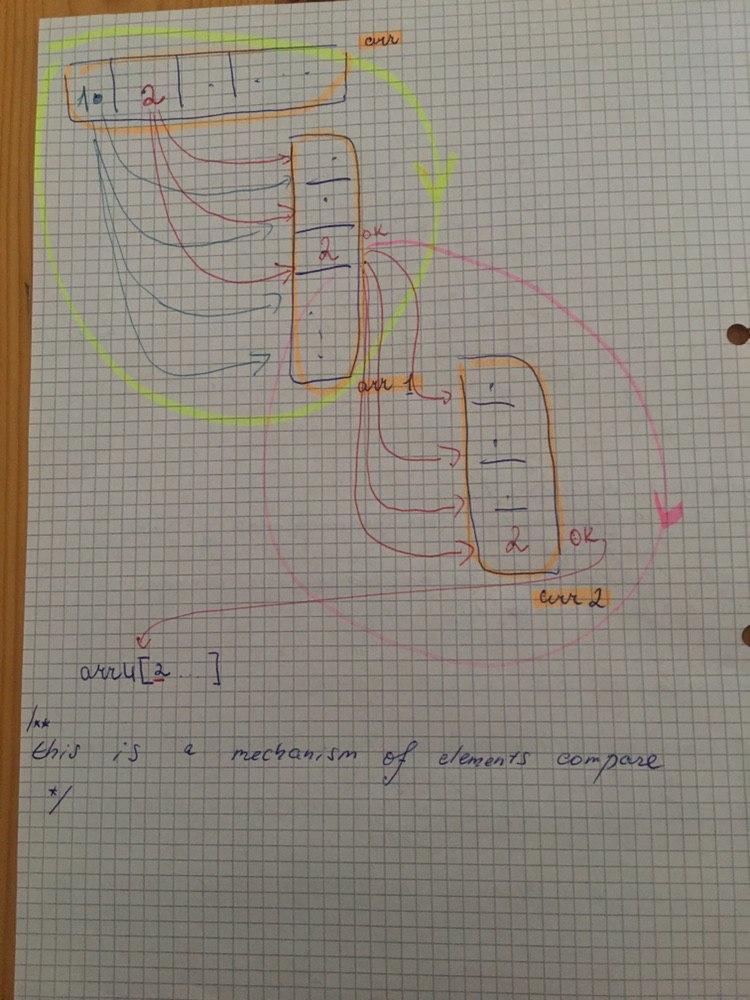 arr
10 2
2 ok
arr 1
2 ok
arr 2
arr4[2...]
/**
this is a mechanism of elements compare
*/